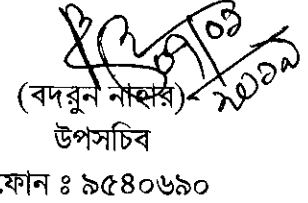 (বদরুন নাহার)
উপসচিব
ফোন ঃ ৯৫৪০৬৯০